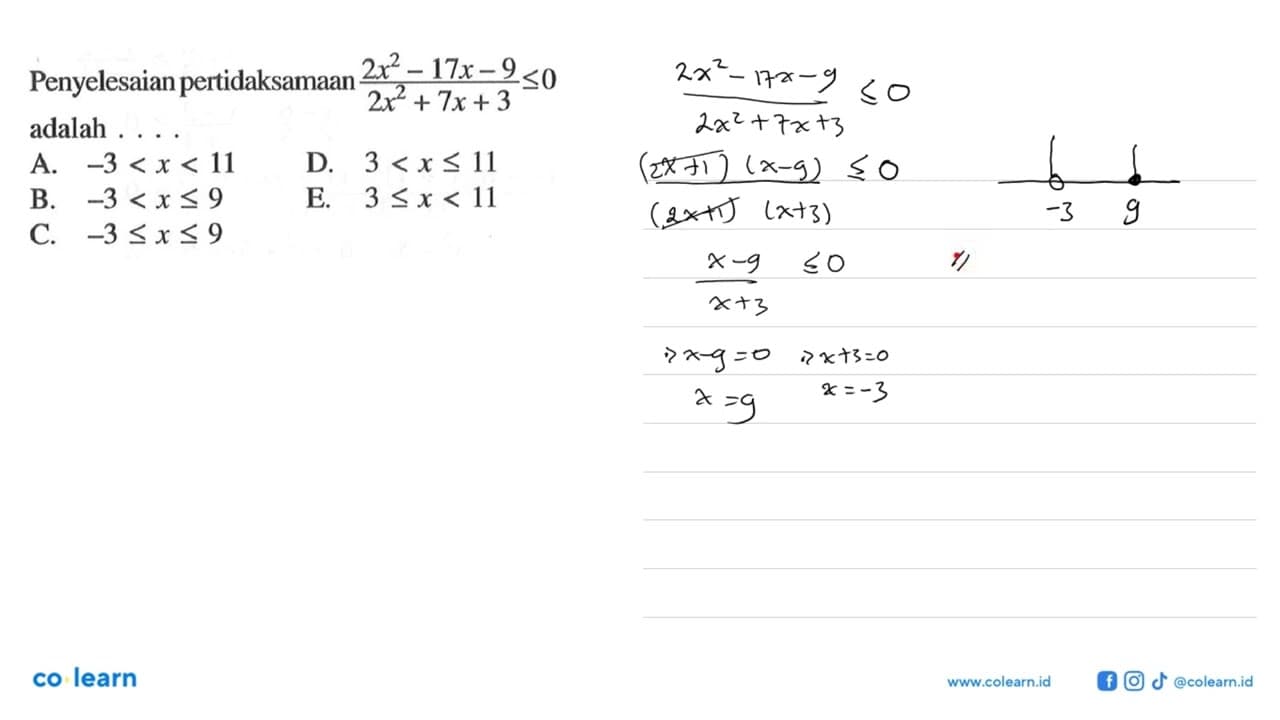 Penyelesaian pertidaksamaan (2x² – 17x – 9)/(2x² + 7x + 3) ≤ 0
adalah . . . .
A. –3 < x < 11
B. –3 < x ≤ 9
C. –3 ≤ x ≤ 9
D. 3 < x ≤ 11
E. 3 ≤ x < 11
2x² – 17x – 9
2x² + 7x + 3
≤ 0
(2x+1) (x–9) ≤ 0
(2x+1) (x+3)
x–9 ≤ 0
x+3
x–9 = 0
x = 9
x+3 = 0
x = –3
–3 9
co learn
www.colearn.id
@colearn.id